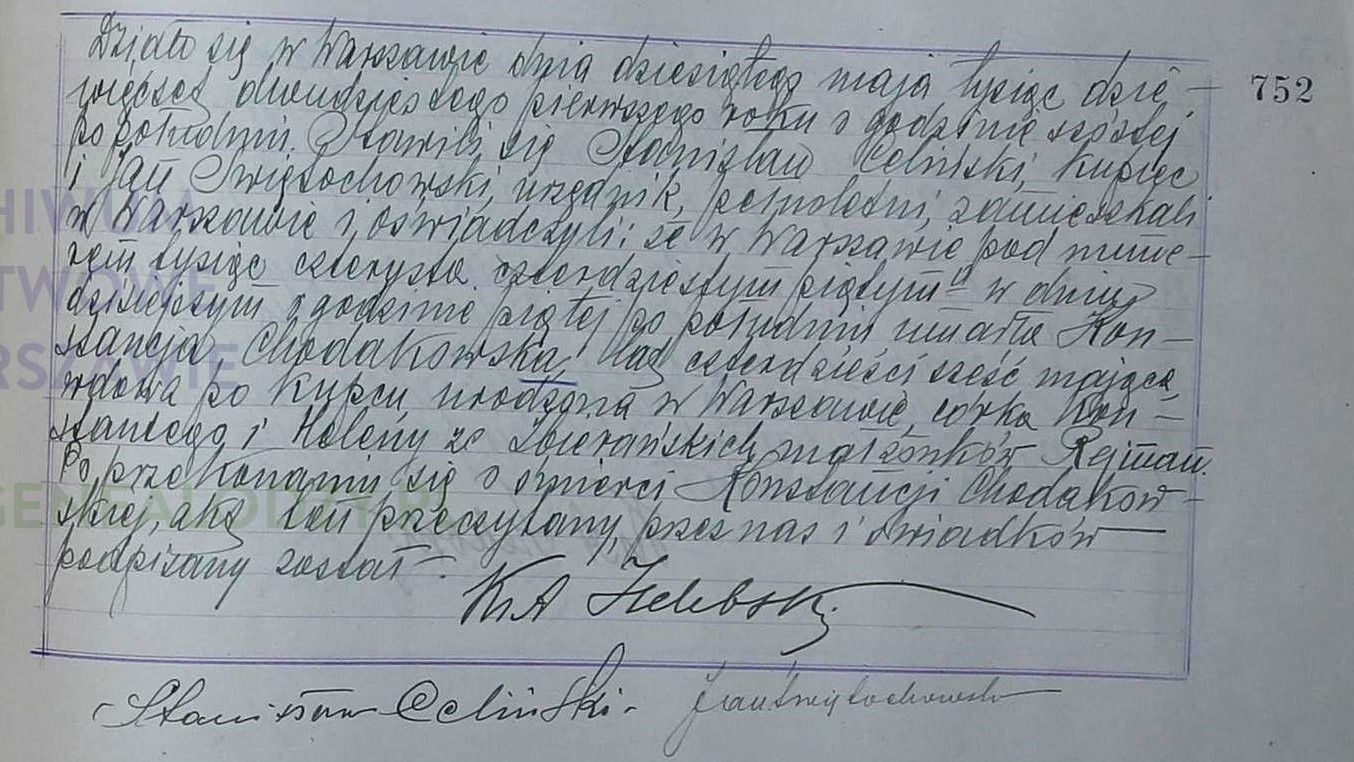 Działo się w Warszawie dnia dziesiątego maja tysiąc dzie-
więćset dwudziestego pierwszego roku o godzinie szóstej
po południu. Stawili się Stanisław Celiński, kupiec
i Jan Świętochowski, urzędnik, pełnoletni, zamieszkali
w Warszawie i oświadczyli: że w Warszawie pod nume-
rem tysiąc czterysta czterdziestym piątym w dniu
dzisiejszym o godzinie piątej po południu umarła Kon-
stancja Chodakowska, lat czterdzieści sześć mająca,
wdowa po kupcu, urodzona w Warszawie, córka Kon-
stantego i Heleny ze Zbierańskich małżonków Rejman.
Po przekonaniu się o śmierci Konstancji Chodakow-
skiej, akt ten przeczytany, przez nas i świadków
podpisany został.
752
Stanisław Celiński.
Jan Świętochowski
HIWUM
TWOWE
RSZAWIE
GENEALODZY.PL